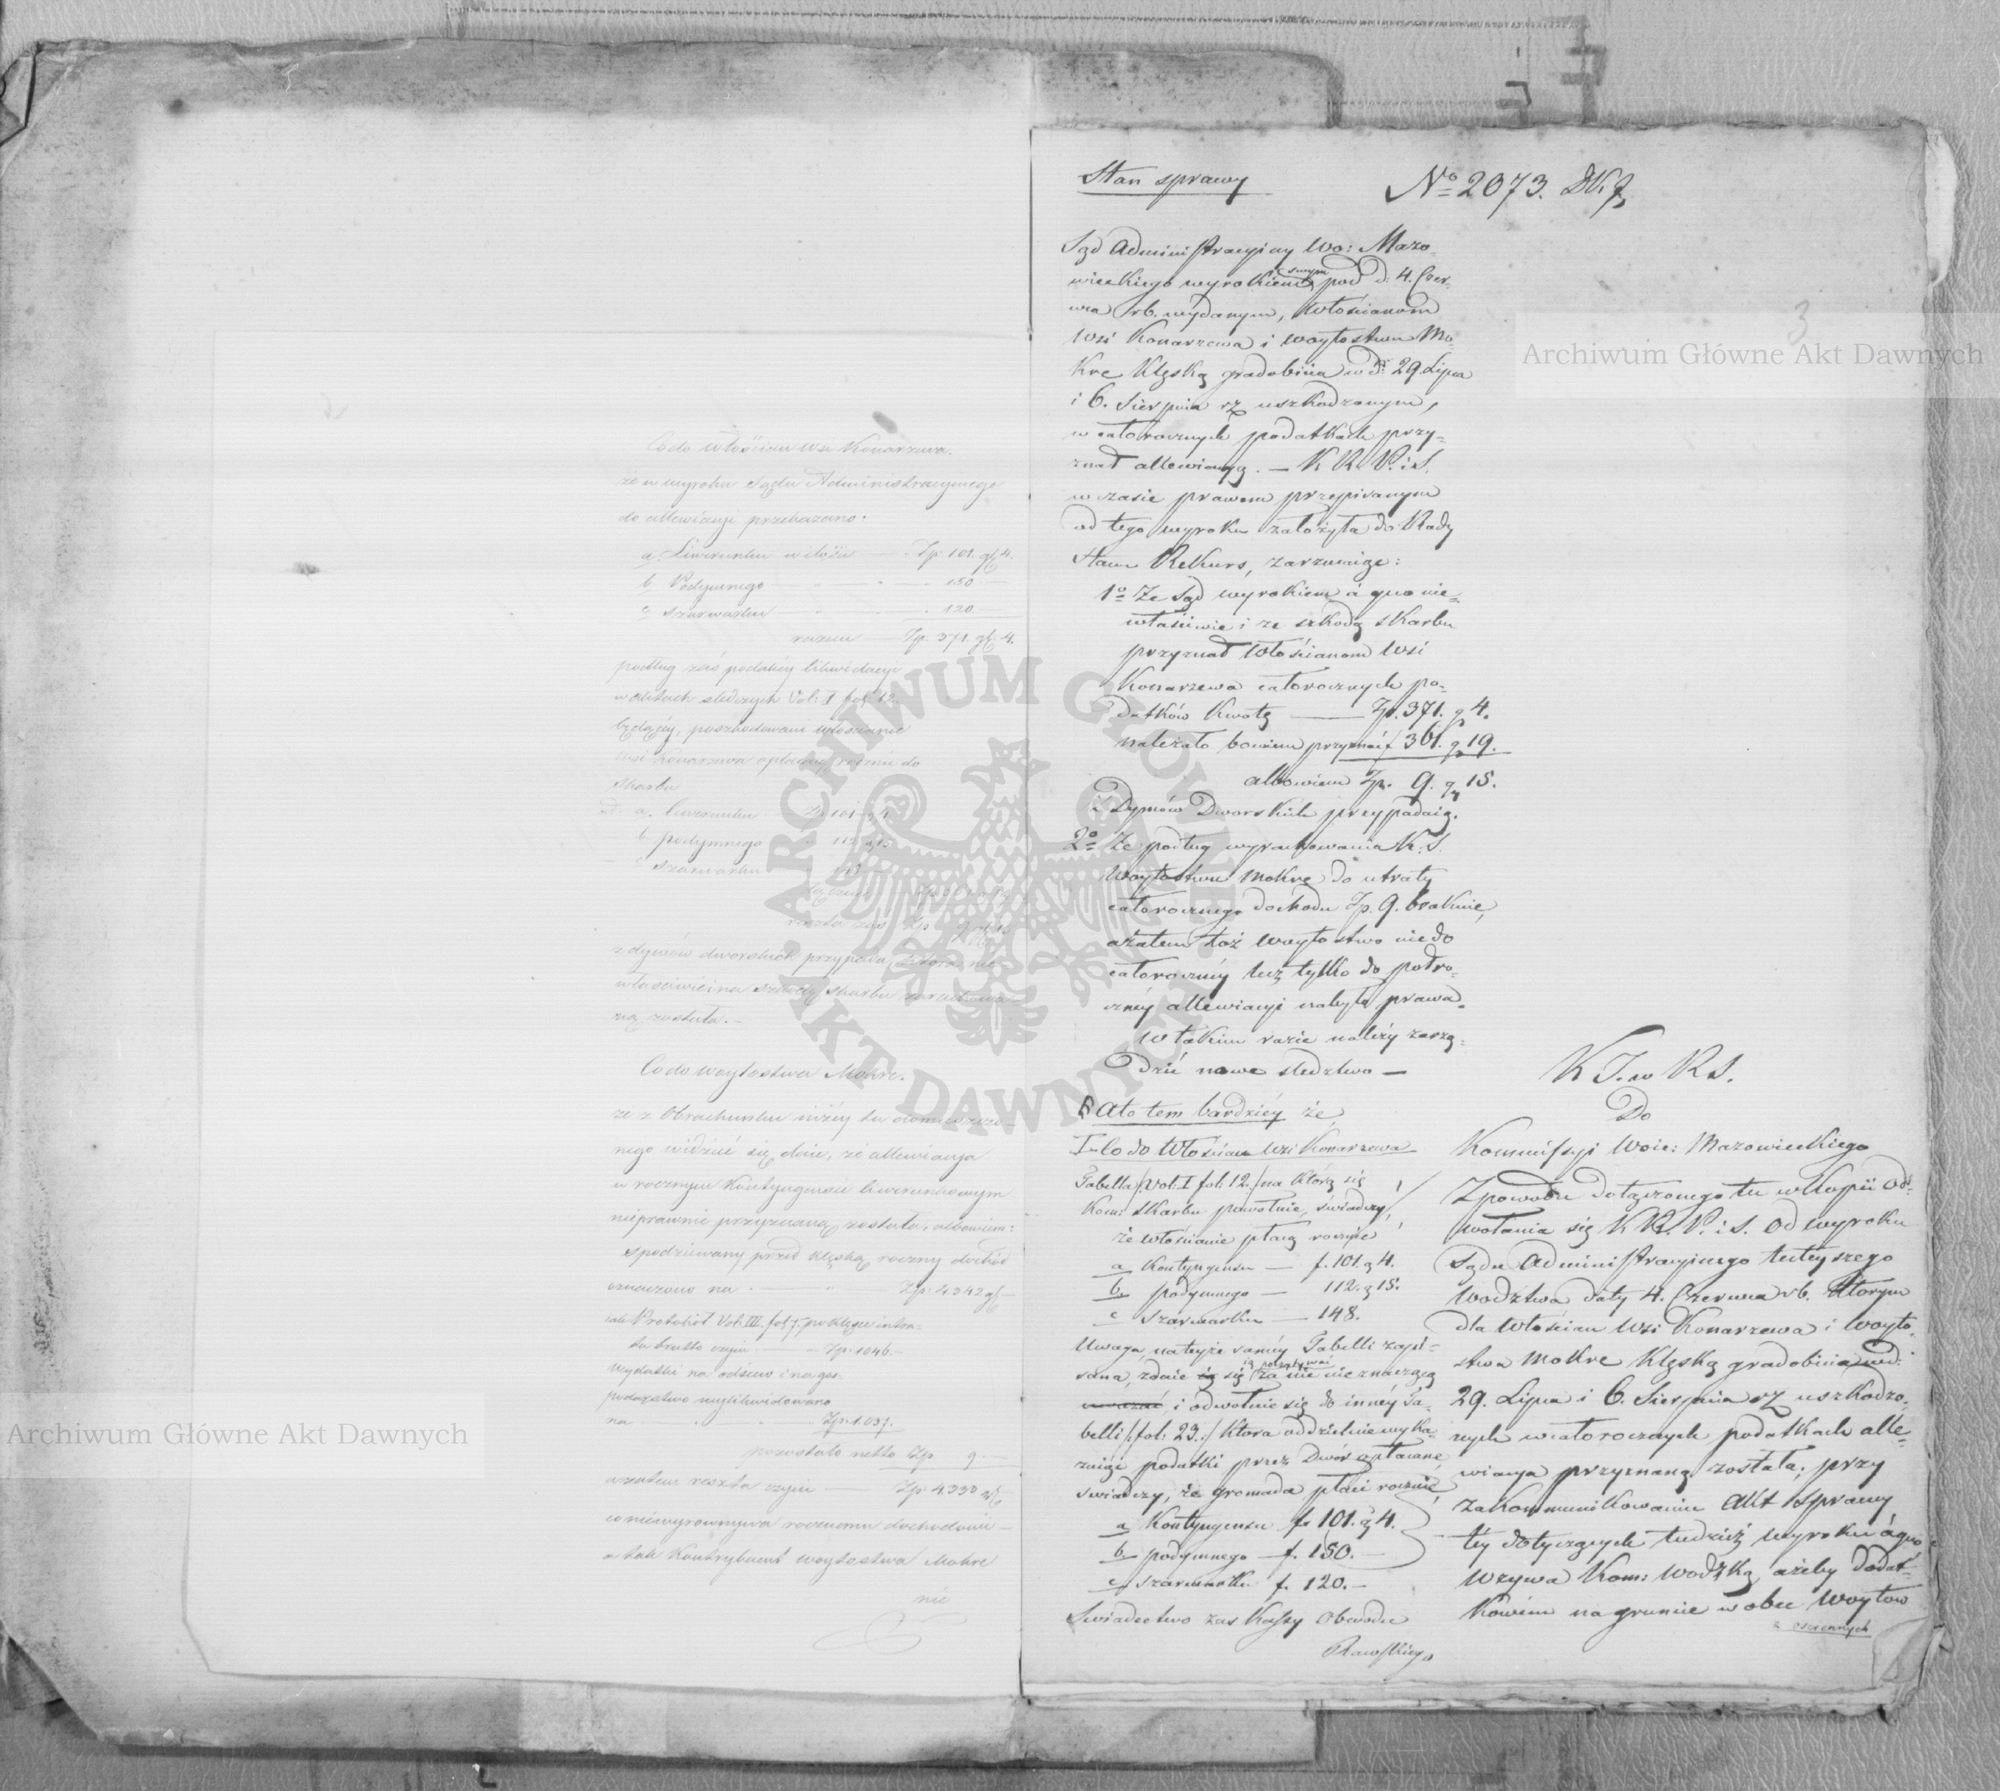 Co do włościan wsi Konarzewa.
że w wyroku Sądu Administracyjnego
do allewiacyi przekazano.
a. Liwerunku w ilości — Zp. 101. gr. 4.
b Podymnego — 150 —
c Szarwarku — 120 —
razem — Zp. 371. gr. 4.
podług zaś podanéy likwidacyi
w aktach śledczych Vol: I fol. 12.
będącéy, poszkodowani włościanie
wsi Konarzewa opłacają rocznie do
Skarbu
a. liwerunku Zp 101 gr 4
b podymnego 112 gr 15
c Szarwarku 148
z dymów dworskich przypada, która nie
właściwie i na szkodę Skarbu
została. —
Co do woytostwa Mokre.
że z Obrachunku niżéy tu
nego widzieć się daie, że allewiacya
w rocznym Kontyngensie liwerunkowym
nieprawnie przyznaną została, albowiem:
Spodziewany przed klęską roczny dochód
oznaczono na — Zp: 4342 gr —
Protokół Vol. III. fol. 7. po klęsce intra-
ta brutto czyni — Zp. 1046. —
Wydatki na odsiew i na gos-
podarstwo wylikwidowano
na — Zp. 1037.
pozostało netto Zp 9. —
a zatem reszta czyni — Zp. 4.333 gr —
co niewyrównywa rocznemu dochodowi —
a tak Kontrybuent woytostwa Mokre
nie
Stan sprawy
No 2073.
3
Sąd Administracyjny Wo: Mazo-
wieckiego wyrokiem swym pod d: 4. Czer-
wca rb. wydanym, Włościanom
Wsi Konarzewa i Woytostwu Mo-
kre Klęską gradobicia w d: 29. Lipca
i 6. Sierpnia rz uszkodzonym,
w całorocznych podatkach przy-
znał allewiacyą. — K R. P. i S.
w czasie prawem przepisanym
od tego wyroku założyła do Rady
Stanu Rekurs, zarzucaiąc:
1o Że Sąd wyrokiem à quo nie-
właściwie i ze szkodą Skarbu
przyznał Włościanom Wsi
Konarzewa całorocznych po-
datków Kwotę — Zp. 371. g 4.
należało bowiem przyznać f 361. g 19.
albowiem Zp. 9. g 15.
z Dymów Dworskich przypadaią.
2o Że podług wyrachowania K. S.
Woytostwu Mokre do utraty
całorocznego dochodu Zp. 9. brakuie,
a zatem toż Woytostwo nie do
całorocznéy lecz tylko do półro-
cznéy allewiacyi nabyło prawa.
W takim razie należy zarzą-
dzić nowe śledztwo —
A to tem bardziéy że
I. Co do Włościan Wsi Konarzewa
Tabella /: Vol. I fol: 12. :/ na którą się
Kom: Skarbu powołuie, świadczy,
że włościanie płacą rocznie
a Kontyngensu — f. 101. g 4.
b podymnego — 112. g 15.
c Szarwarku — 148.
Uwaga na teyże saméy Tabelli zapi-
sana, zdaie się ią poczytywać za nic nieznaczącą
i odwołuie się do innéy Ta-
belli /: fol: 23. :/ która oddzielnie wyka-
zuiąc podatki przez Dwór opłacane
świadczy, że gromada płaci rocznie
a Kontyngensu f. 101. g 4.
b podymnego — f. 150. —
c Szarwarku f. 120. —
Świadectwo zaś Kassy Obwodu
Rawskiego
K J. w R S.
Do
Kommissyi Woie: Mazowieckiego
Z powodu dołączonego tu w kopii Od-
wołania się K R. P. i S. od wyroku
Sądu Administracyjnego tuteyszego
Wodztwa daty 4. Czerwca rb. którym
dla Włościan Wsi Konarzewa i Woyto-
stwa Mokre Klęską gradobicia w d:
29. Lipca i 6. Sierpnia rz uszkodzo-
nych w całorocznych podatkach alle-
wiacya przyznaną została; przy
zakommunikowaniu Akt sprawy
téy dotyczących tudzież wyroku à quo
wzywa Kom: Wodzką ażeby dodat-
kowem na gruncie w obec Woytów
z ościennych
Archiwum Główne Akt Dawnych
Archiwum Główne Akt Dawnych
ARCHIWUM GŁÓWNE
AKT DAWNYCH